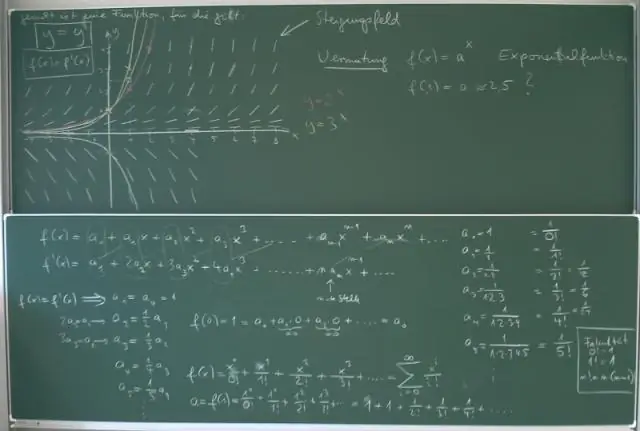 gesucht ist eine Funktion, für die gilt:
y = y'
f(x) = f'(x)
Steigungsfeld
Vermutung f(x) = a^x Exponentialfunktion
f(1) = a ≈ 2,5 ?
y = 2^x
y = 3^x
f(x) = a₀ + a₁x + a₂x² + a₃x³ + .... + aₙ₋₁xⁿ⁻¹ + aₙxⁿ + ....
f'(x) = a₁ + 2a₂x + 3a₃x² + 4a₄x³ ...... + n aₙxⁿ⁻¹ + ....
n-te Stelle
f(x) = f'(x) ⟹ a₁ = a₀ = 1
2a₂ = a₁ → a₂ = 1/2 a₁
3a₃ = a₂ → a₃ = 1/3 a₂
a₄ = 1/4 a₃
a₅ = 1/5 a₄
f(0) = 1 = a₀ + a₁·0 + a₂·0 + .... = a₀
=0 =0
f(x) = x⁰/0! + x¹/1! + x²/2! + x³/3! + .... = ∑_{i=0}^{∞} xⁱ/i!
a = f(1) = 1⁰/0! + 1¹/1! + 1²/2! + 1³/3! + ... = 1 + 1 + 1/2! + 1/3! + 1/4! + ....
a₀ = 1 = 1/0!
a₁ = 1/1 = 1/1!
a₂ = 1/1·2 = 1/2! = 1/2
a₃ = 1/1·2·3 = 1/3! = 1/6
a₄ = 1/1·2·3·4 = 1/4! = 1/24
a₅ = 1/1·2·3·4·5 = 1/5!
Fakultät
0! = 1
1! = 1